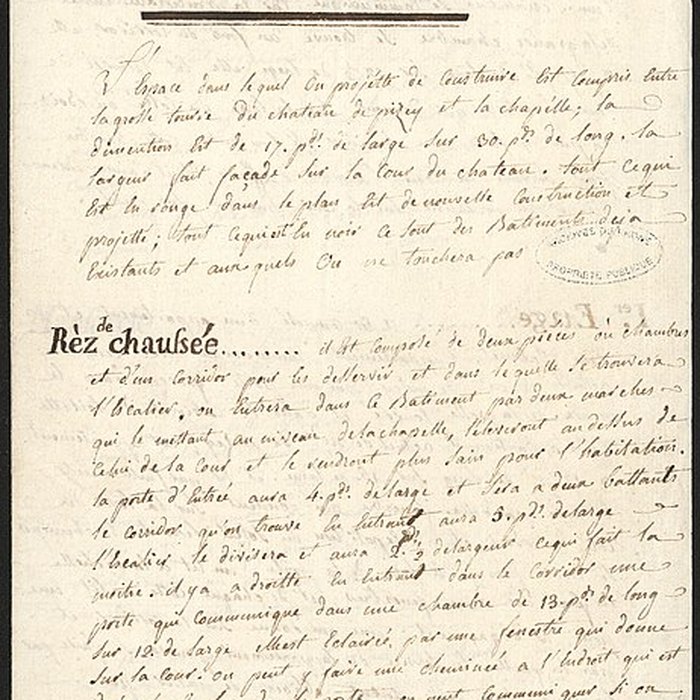 L'Espace dans lequel On projette de Construire Est Compris Entre
la grosse tourie du chateau de pizey et la chapelle; la
dimention Est de 17. pds. de large sur 30. pds. de long. la
largeur fait façade sur la Cour du chateau. tout cequi
Est En rouge dans le plan Est de nouvelle Construction et
projetté; tout cequi est En noir ce sont des Batiments deja
Existants et aux quels On ne touchera pas
PROPRIÉTÉ PUBLIQUE
1er Etage
Rèz de chaussée......... il Est Composé de deux pieces ou chambres
et d'un Corridor pour les desservir et dans le quelle se trouvera
l'Escalier. on Entrera dans Ce Batiment par deux marches
qui le mettant au niveau de la chapelle, l'éleveront au dessus de
Celui de la Cour et le rendront plus Sain pour l'habitation.
la porte d'Entrée aura 4. pds. de large et sera a deux battants
le Corridor qu'on trouve En Entrant aura 5. pds. de large
l'Escalier le divisera et aura 2. pds. ½ de largeur cequi fait la
moitie. il y a a droitte En Entrant dans le Corridor une
porte qui Communique dans une chambre de 13. pds. de long
sur 12. de large Elle est Eclairée par une fenestre qui donne
sur la cour. on peut y faire une cheminée a l'Endroit qui est
on peut Communiquer si on